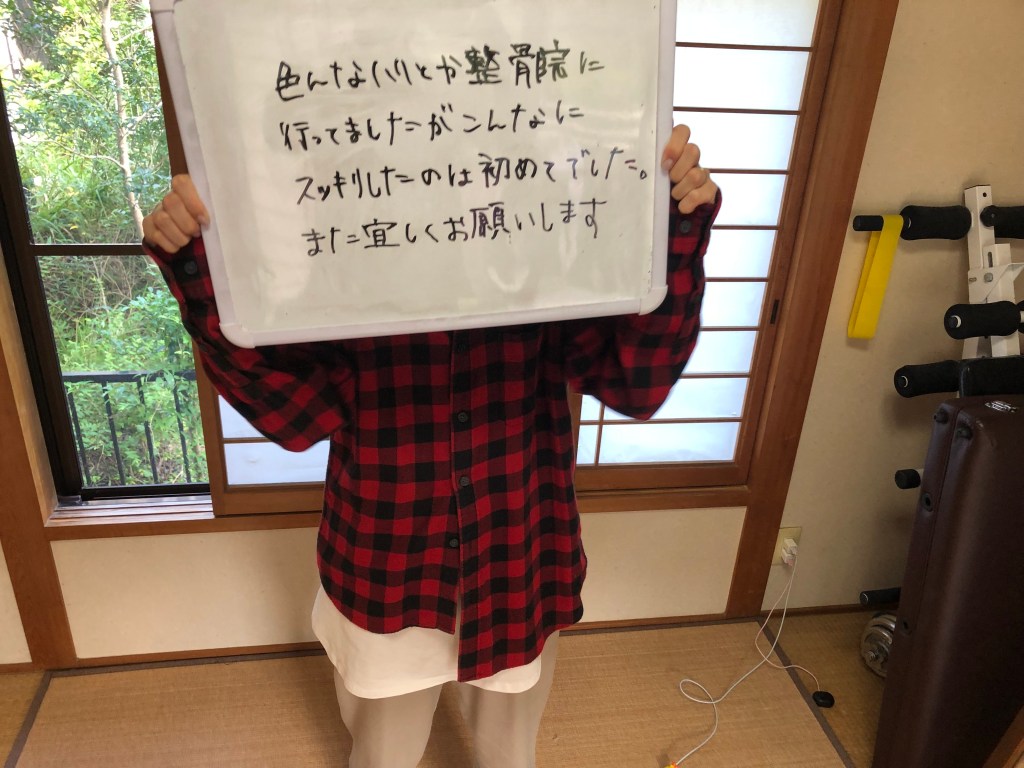 色んなハリとか整骨院に
行ってましたがこんなに
スッキリしたのは初めてでした。
また宜しくお願いします